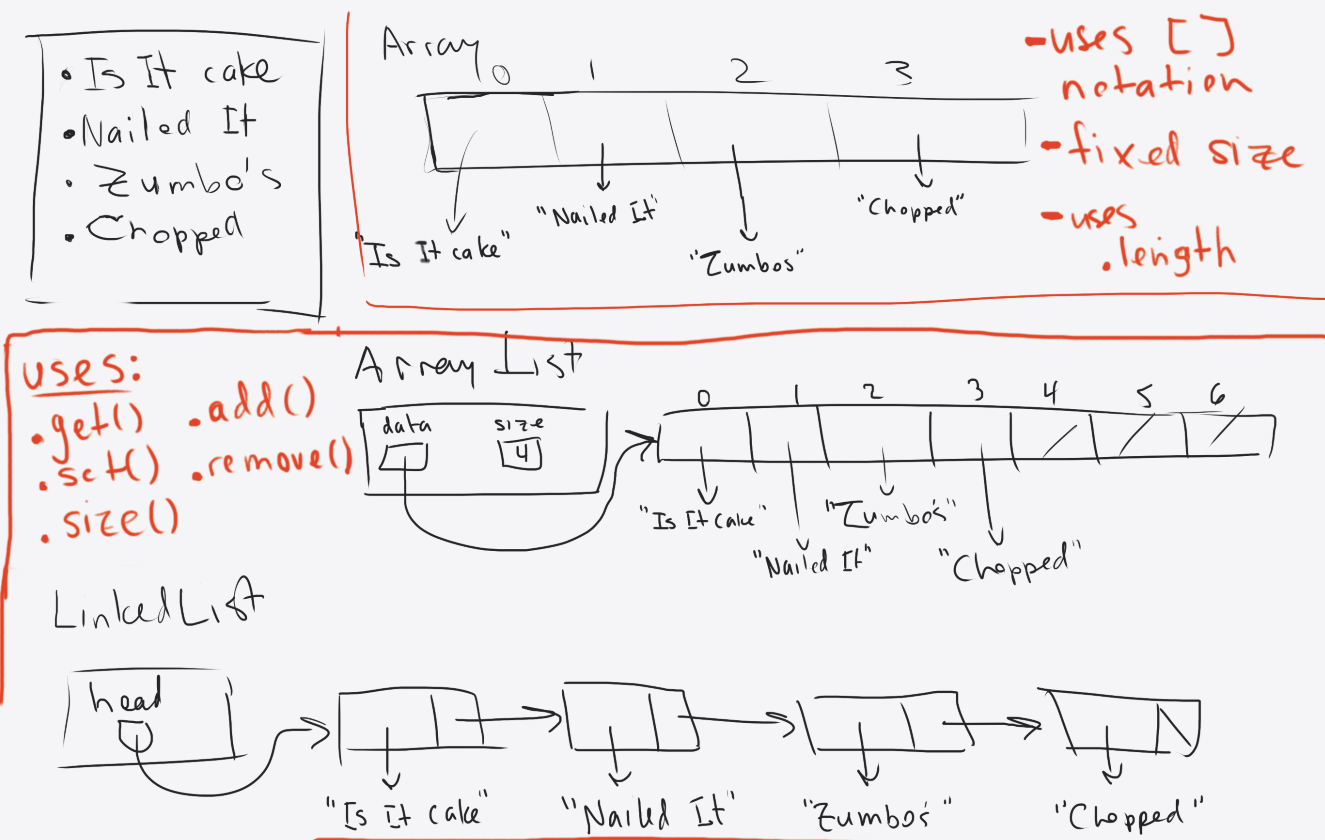 • Is It cake
• Nailed It
• Zumbo's
• Chopped
Array
0 1 2 3
"Is It cake"
"Nailed It"
"Zumbos"
"Chopped"
-uses []
notation
-fixed size
-uses
.length
uses:
.get() .add()
.set() .remove()
.size()
Array List
data size
4
0 1 2 3 4 5 6
"Is It Cake"
"Nailed It"
"Zumbo's"
"Chopped"
LinkedList
head
"Is It cake" "Nailed It" "Zumbo's" "Chopped"